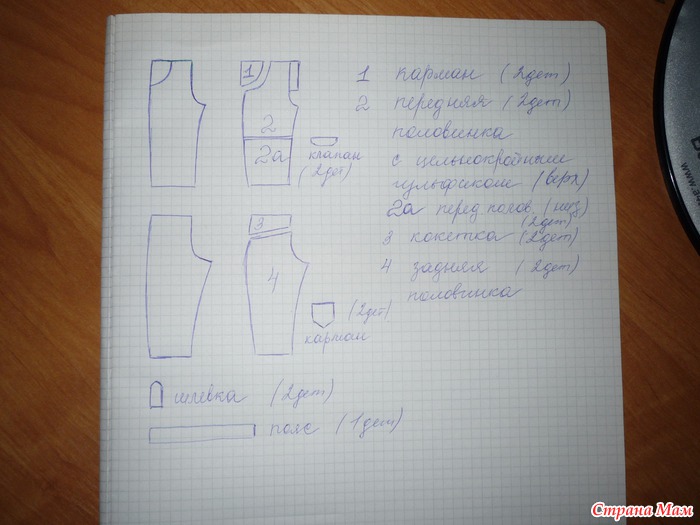 1
2
2а
клапан
(2дет)
3
4
(2дет)
карман
шлевка (2дет)
пояс (1дет)
1 карман (2дет)
2 передняя (2дет)
половинка
с цельнокройным
гульфиком (верх)
2а перед полов. (низ)
(2дет)
3 кокетка (2дет)
4 задняя (2дет)
половинка
Страна Мам